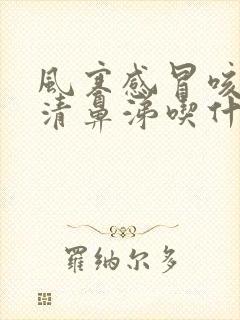 風寒感冒咳
清鼻涕喫什
羅纳尔多